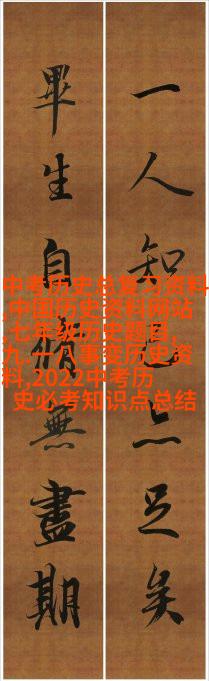 一人知足矣
畢生自脩無盡期
中考历史总复习资料
,中国历史资料网站
,七年级历史题目,
九.一八事变历史资
料,2022中考历
史必考知识点总结